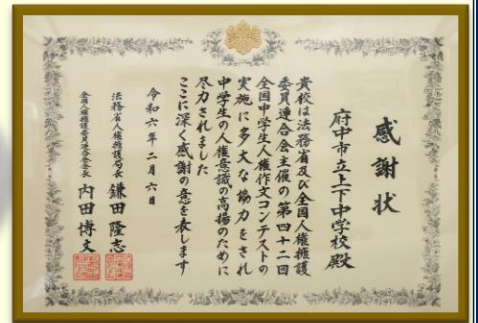 感謝状
府中市立上下中学校殿
貴校は法務省及び全国人権擁護
委員連合会主催の第四十二回
全国中学生人権作文コンテストの
実施に多大な協力をされ
中学生の人権意識の高揚のために
尽力されました
ここに深く感謝の意を表します
令和六年二月六日
法務省人権擁護局長 鎌田隆志
全国人権擁護委員連合会会長 内田博文